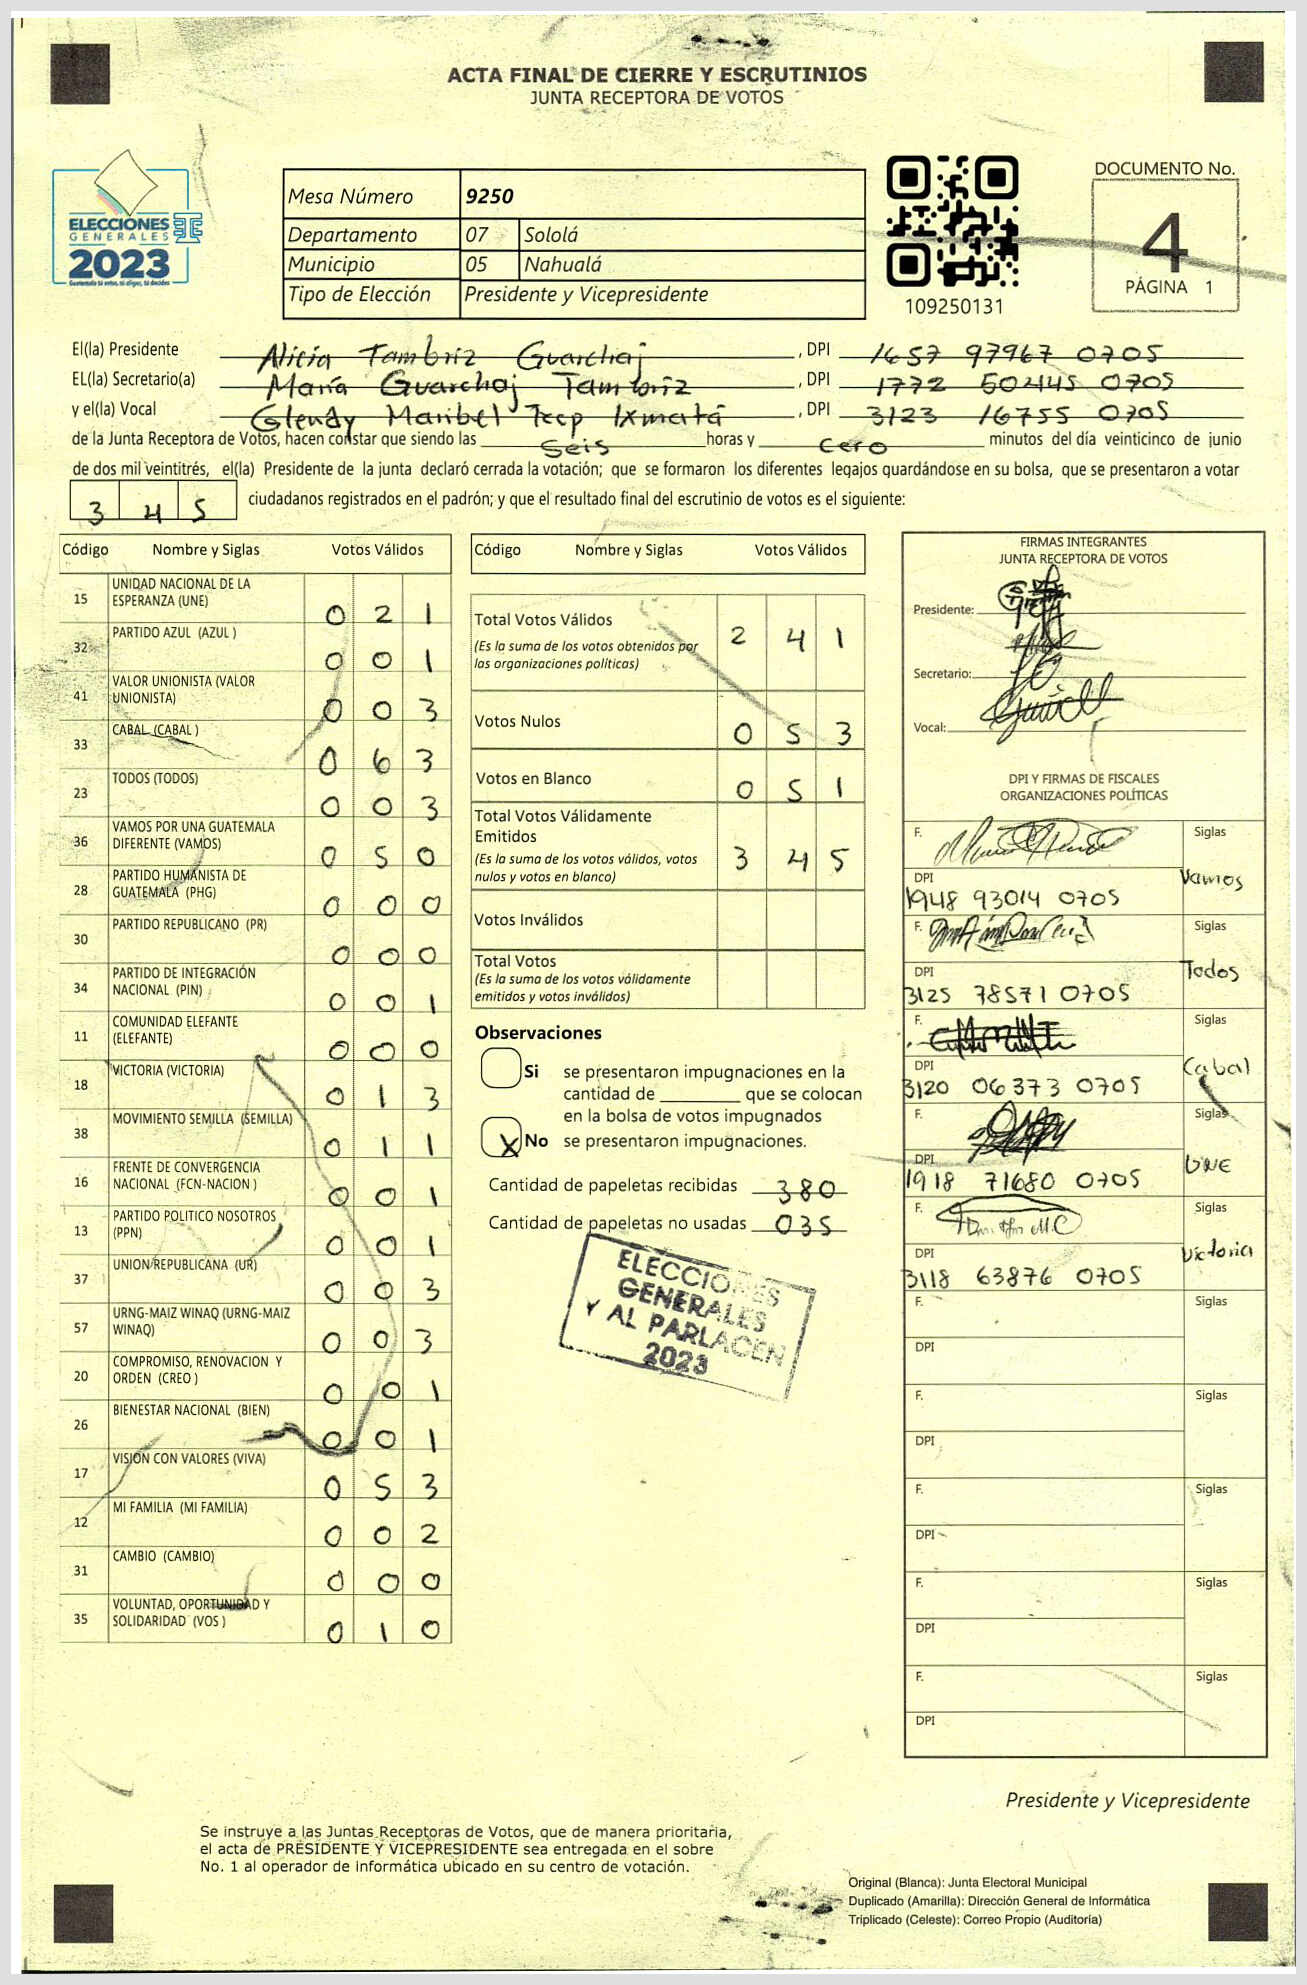 ACTA FINAL DE CIERRE Y ESCRUTINIOS
JUNTA RECEPTORA DE VOTOS
ELECCIONES
GENERALES
2023
Guatemala tú eres, tú eliges, tú decides
Mesa Número 9250
Departamento 07 Sololá
Municipio 05 Nahualá
Tipo de Elección Presidente y Vicepresidente
109250131
DOCUMENTO No.
4
PÁGINA 1
El(la) Presidente Alicia Tambriz Guarchaj , DPI 1657 97967 0705
EL(la) Secretario(a) María Guarchaj Tambriz , DPI 1772 50445 0705
y el(la) Vocal Glendy Maribel Tecp Ixmatá , DPI 3123 16755 0705
de la Junta Receptora de Votos, hacen constar que siendo las Seis horas y cero minutos del día veinticinco de junio
de dos mil veintitrés, el(la) Presidente de la junta declaró cerrada la votación; que se formaron los diferentes legajos guardándose en su bolsa, que se presentaron a votar
3 4 5 ciudadanos registrados en el padrón; y que el resultado final del escrutinio de votos es el siguiente:
Código Nombre y Siglas Votos Válidos
15 UNIDAD NACIONAL DE LA ESPERANZA (UNE) 0 2 1
32 PARTIDO AZUL (AZUL ) 0 0 1
41 VALOR UNIONISTA (VALOR UNIONISTA) 0 0 3
33 CABAL (CABAL ) 0 6 3
23 TODOS (TODOS) 0 0 3
36 VAMOS POR UNA GUATEMALA DIFERENTE (VAMOS) 0 5 0
28 PARTIDO HUMANISTA DE GUATEMALA (PHG) 0 0 0
30 PARTIDO REPUBLICANO (PR) 0 0 0
34 PARTIDO DE INTEGRACIÓN NACIONAL (PIN) 0 0 1
11 COMUNIDAD ELEFANTE (ELEFANTE) 0 0 0
18 VICTORIA (VICTORIA) 0 1 3
38 MOVIMIENTO SEMILLA (SEMILLA) 0 1 1
16 FRENTE DE CONVERGENCIA NACIONAL (FCN-NACION ) 0 0 1
13 PARTIDO POLITICO NOSOTROS (PPN) 0 0 1
37 UNION REPUBLICANA (UR) 0 0 3
57 URNG-MAIZ WINAQ (URNG-MAIZ WINAQ) 0 0 3
20 COMPROMISO, RENOVACION Y ORDEN (CREO ) 0 0 1
26 BIENESTAR NACIONAL (BIEN) 0 0 1
17 VISION CON VALORES (VIVA) 0 5 3
12 MI FAMILIA (MI FAMILIA) 0 0 2
31 CAMBIO (CAMBIO) 0 0 0
35 VOLUNTAD, OPORTUNIDAD Y SOLIDARIDAD (VOS ) 0 1 0
Código Nombre y Siglas Votos Válidos
Total Votos Válidos 2 4 1
(Es la suma de los votos obtenidos por
las organizaciones políticas)
Votos Nulos 0 5 3
Votos en Blanco 0 5 1
Total Votos Válidamente
Emitidos
(Es la suma de los votos válidos, votos
nulos y votos en blanco) 3 4 5
Votos Inválidos
Total Votos
(Es la suma de los votos válidamente
emitidos y votos inválidos)
Observaciones
Si se presentaron impugnaciones en la
cantidad de ________ que se colocan
en la bolsa de votos impugnados
X No se presentaron impugnaciones.
Cantidad de papeletas recibidas 380
Cantidad de papeletas no usadas 035
ELECCIONES
GENERALES
Y AL PARLACEN
2023
FIRMAS INTEGRANTES
JUNTA RECEPTORA DE VOTOS
Presidente:
Secretario:
Vocal:
DPI Y FIRMAS DE FISCALES
ORGANIZACIONES POLÍTICAS
F. Siglas
DPI Vamos
1948 93014 0705
F. Siglas
DPI Todos
3125 78571 0705
F. Siglas
DPI Cabal
3120 06373 0705
F. Siglas
DPI UNE
1918 71680 0705
F. Siglas
DPI Victoria
3118 63876 0705
F. Siglas
DPI
F. Siglas
DPI
F. Siglas
DPI
F. Siglas
DPI
F. Siglas
DPI
Presidente y Vicepresidente
Se instruye a las Juntas Receptoras de Votos, que de manera prioritaria,
el acta de PRESIDENTE Y VICEPRESIDENTE sea entregada en el sobre
No. 1 al operador de informática ubicado en su centro de votación.
Original (Blanca): Junta Electoral Municipal
Duplicado (Amarilla): Dirección General de Informática
Triplicado (Celeste): Correo Propio (Auditoría)